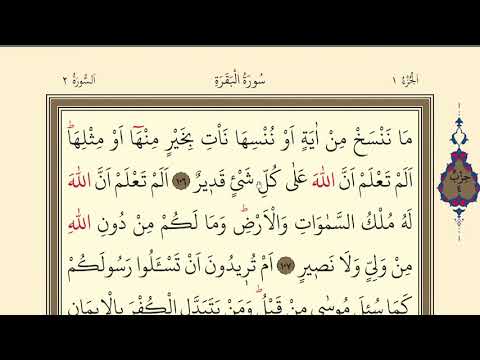 الجزء ١
سورة البقرة
السورة ٢
حزب
٤
مَا نَنْسَخْ مِنْ اٰيَةٍ اَوْ نُنْسِهَا نَاْتِ بِخَيْرٍ مِنْهَٓا اَوْ مِثْلِهَاۜ
اَلَمْ تَعْلَمْ اَنَّ اللّٰهَ عَلٰى كُلِّ شَيْءٍ قَد۪يرٌ ١٠٦ اَلَمْ تَعْلَمْ اَنَّ اللّٰهَ
لَهُ مُلْكُ السَّمٰوَاتِ وَالْاَرْضِۜ وَمَا لَكُمْ مِنْ دُونِ اللّٰهِ
مِنْ وَلِيٍّ وَلَا نَص۪يرٍ ١٠٧ اَمْ تُر۪يدُونَ اَنْ تَسْـَٔلُوا رَسُولَكُمْ
كَمَا سُئِلَ مُوسٰى مِنْ قَبْلُۜ وَمَنْ يَتَبَدَّلِ الْكُفْرَ بِالْا۪يمَانِ